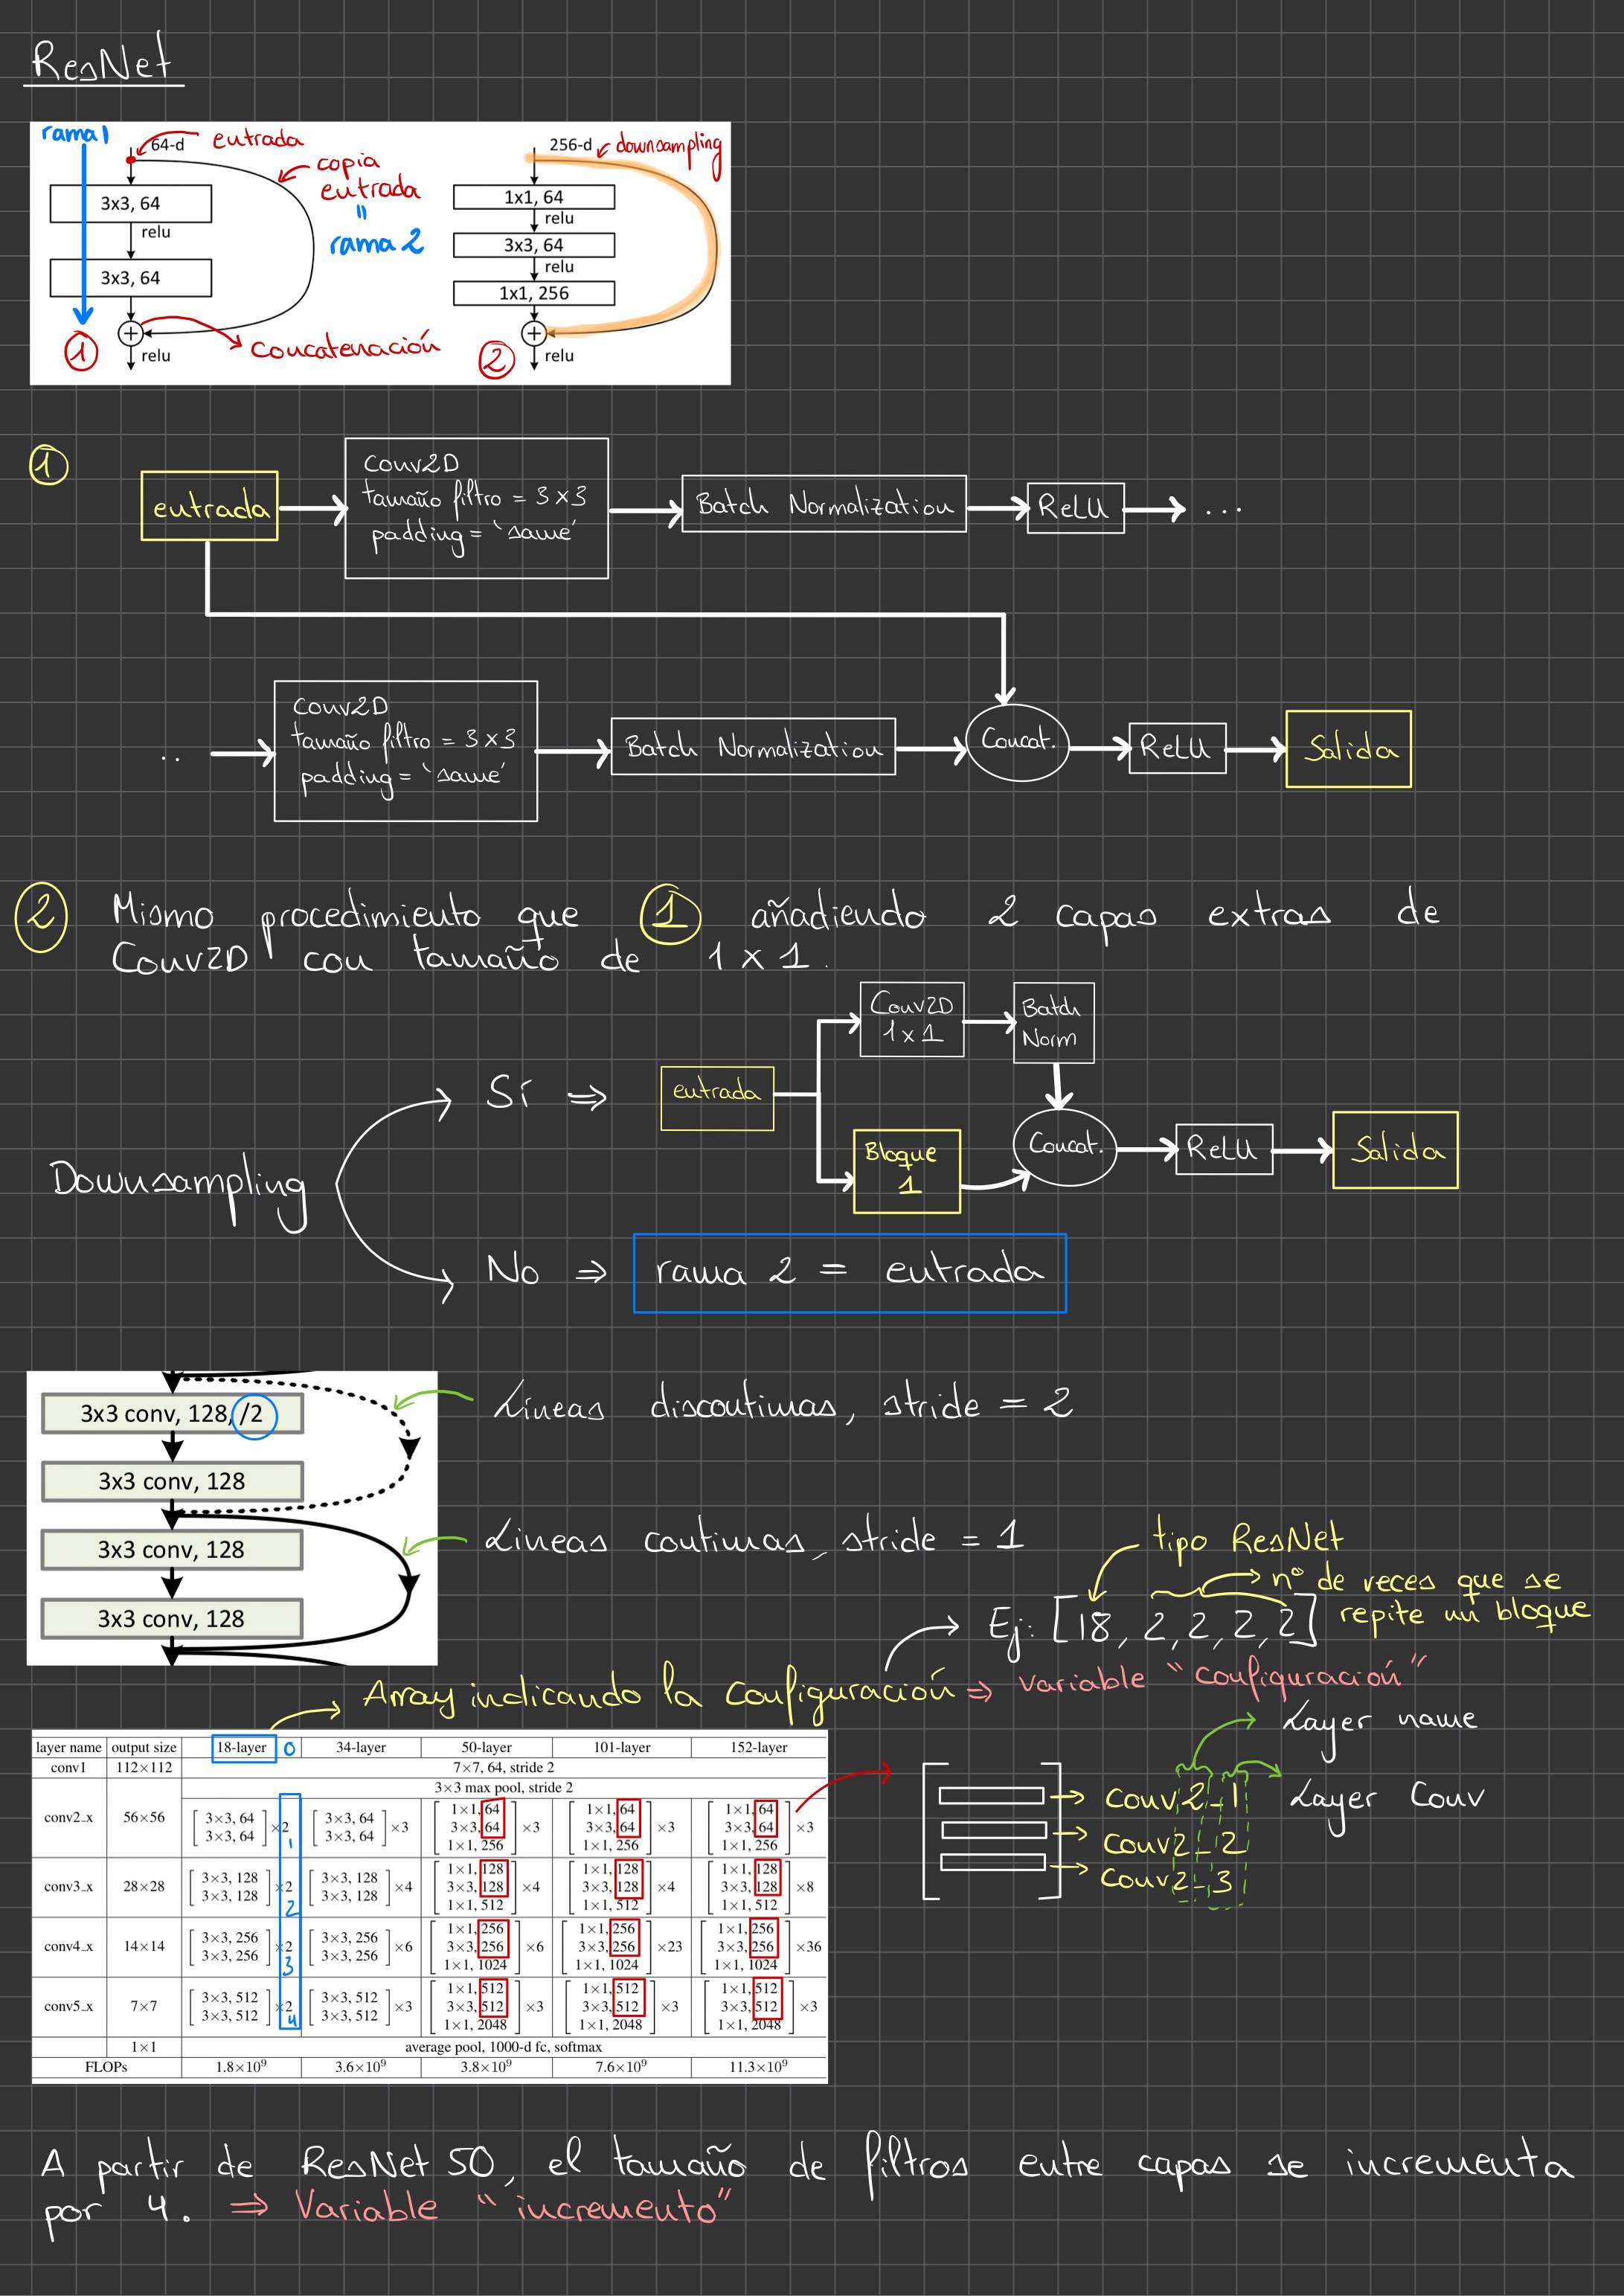 ResNet
rama 1
64-d
entrada
copia
entrada
"
rama 2
3x3, 64
relu
3x3, 64
relu
concatenación
1
256-d
downsampling
1x1, 64
relu
3x3, 64
relu
1x1, 256
relu
2
1
entrada
Conv2D
tamaño filtro = 3x3
padding = 'same'
Batch Normalization
ReLU
...
..
Conv2D
tamaño filtro = 3x3
padding = 'same'
Batch Normalization
Concat.
ReLU
Salida
2 Mismo procedimiento que 1 añadiendo 2 capas extras de
Conv2D con tamaño de 1 x 1.
Downsampling
Sí ⇒
entrada
Conv2D
1x1
Batch
Norm
Bloque
1
Concat.
ReLU
Salida
No ⇒ rama 2 = entrada
3x3 conv, 128, /2
3x3 conv, 128
3x3 conv, 128
3x3 conv, 128
Líneas discontinuas, stride = 2
Líneas continuas, stride = 1
tipo ResNet
nº de veces que se
repite un bloque
Ej: [18, 2, 2, 2, 2]
Array indicando la configuración ⇒ variable "configuración"
layer name output size 18-layer 0 34-layer 50-layer 101-layer 152-layer
conv1 112×112 7×7, 64, stride 2
3×3 max pool, stride 2
conv2_x 56×56 [3×3, 64 3×3, 64]×2 1 [3×3, 64 3×3, 64]×3 [1×1, 64 3×3, 64 1×1, 256]×3 [1×1, 64 3×3, 64 1×1, 256]×3 [1×1, 64 3×3, 64 1×1, 256]×3
conv3_x 28×28 [3×3, 128 3×3, 128]×2 2 [3×3, 128 3×3, 128]×4 [1×1, 128 3×3, 128 1×1, 512]×4 [1×1, 128 3×3, 128 1×1, 512]×4 [1×1, 128 3×3, 128 1×1, 512]×8
conv4_x 14×14 [3×3, 256 3×3, 256]×2 3 [3×3, 256 3×3, 256]×6 [1×1, 256 3×3, 256 1×1, 1024]×6 [1×1, 256 3×3, 256 1×1, 1024]×23 [1×1, 256 3×3, 256 1×1, 1024]×36
conv5_x 7×7 [3×3, 512 3×3, 512]×2 4 [3×3, 512 3×3, 512]×3 [1×1, 512 3×3, 512 1×1, 2048]×3 [1×1, 512 3×3, 512 1×1, 2048]×3 [1×1, 512 3×3, 512 1×1, 2048]×3
1×1 average pool, 1000-d fc, softmax
FLOPs 1.8×10⁹ 3.6×10⁹ 3.8×10⁹ 7.6×10⁹ 11.3×10⁹
Layer name
Layer Conv
conv2_1
conv2_2
conv2_3
A partir de ResNet 50, el tamaño de filtros entre capas se incrementa
por 4. ⇒ Variable "incremento"